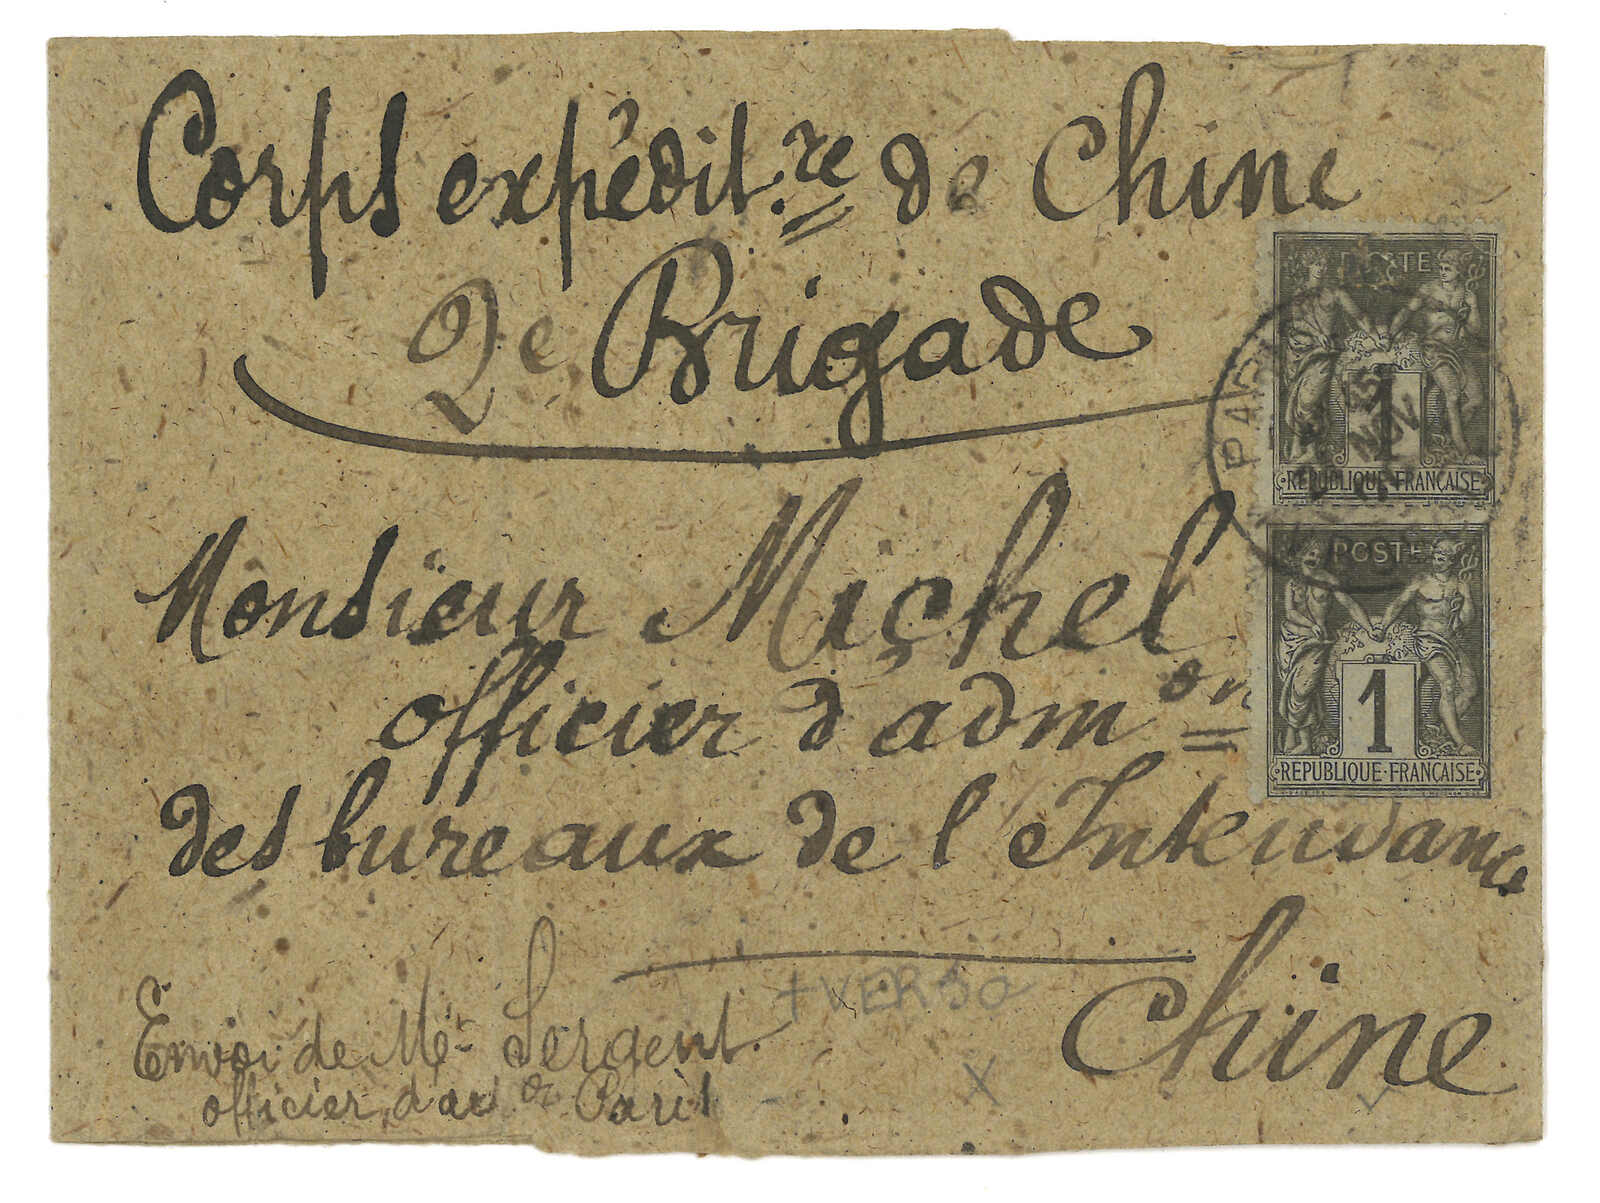 Corps expédit.re de Chine
2e Brigade
Monsieur Michel
officier d'admon
des bureaux de l'Intendance
Chine
Envoi de Mr Sergent.
officier Paris
+ VERSO
X
POSTE
1
RÉPUBLIQUE FRANÇAISE
PARIS
25
NOV
POSTE
1
RÉPUBLIQUE FRANÇAISE